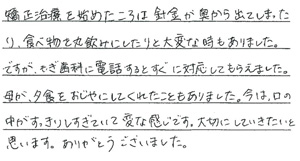 矯正治療を始めたころは針金が奥から出てしまった
り、食べ物を丸飲みにしたりと大変な時もありました。
ですが、もぎ歯科に電話するとすぐに対応してもらえました。
母が、夕食をおじやにしてくれたこともありました。今は、口の
中がすっきりしすぎていて変な感じです。大切にしていきたいと
思います。ありがとうございました。